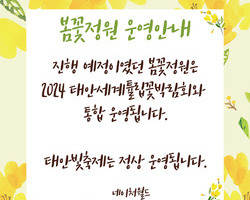 봄꽃정원 운영안내
진행 예정이였던 봄꽃정원은
2024 태안세계튤립꽃박람회와
통합 운영됩니다.
태안빛축제는 정상 운영됩니다.
네이처월드